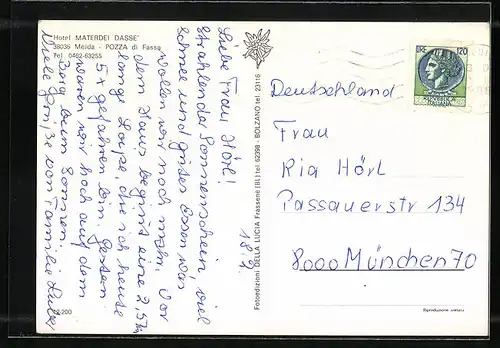 Hotel MATERDEI DASSE'
38036 Meida - POZZA di Fassa
Tel. 0462-63255
Liebe Frau Hörl!
Strahlender Sonnenschein viel
Schnee und gutes Essen was
wollen wir noch mehr. Vor
dem Haus beginnt eine 2,5 km
lange Loipe die ich heute
5x gefahren bin. Gestern
waren wir hoch auf dem
Berg beim Sonnen.
Viele Grüße von Familie
18.2.
42.200
Fotoedizioni DELLA LUCIA Frassenè (BL) tel. 62398 - BOLZANO tel. 23116
LIRE 120
Deutschland
Frau
Ria Hörl
Passauerstr 134
8000 München 70
Riproduzione vietata